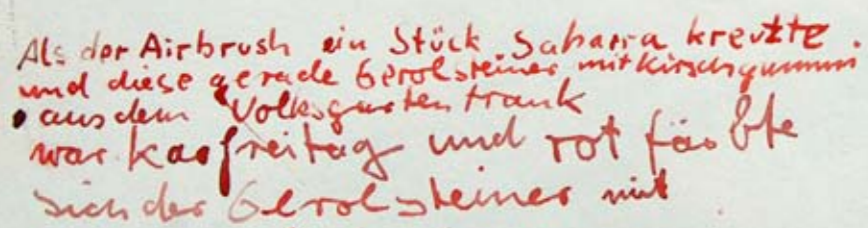 Als der Airbrush ein Stück Saharra kreuzte
und diese gerade Gerolsteiner mit Kirschgummi
aus dem Volksgarten trank
war karfreitag und rot färbte
sich der Gerolsteiner mit